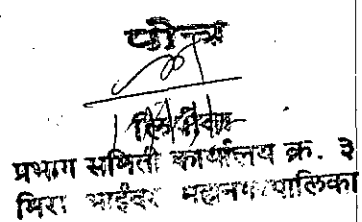 लिपीक
प्रभाग समिती कार्यालय क्र. ३
मिरा भाईंदर महानगरपालिका